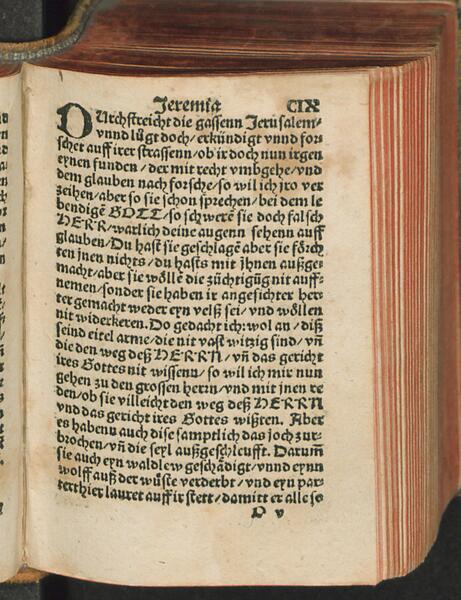 Jeremia CIX
DUrchstreicht die gassenn Jerusalem/
vnnd lůgt doch/ erkündigt vnnd for
schet auff irer strassenn/ ob ir doch nun irgen
eynen funden/ der mit recht vmbgehe/ vnd
dem glauben nach forsche/ so wil ich jro ver
zeihen/ aber so sie schon sprechen/ bei dem le
bendigē GOTT/ so schwerē sie doch falsch
HERR/ warlich deine augenn sehenn auff
glauben/ Du hast sie geschlagē aber sie förch
ten jnen nichts/ du hasts mit jhnen außge
macht/ aber sie wöllē die züchtigūg nit auff-
nemen/ sonder sie haben ir angesichter her-
ter gemacht weder eyn velß sei/ vnd wöllen
nit widerkeren. Do gedacht ich: wol an/ diß
seind eitel arme/ die nit vast witzig sind/ vñ
die den weg deß HERRN/ vñ das gericht
ires Gottes nit wissenn/ so wil ich mir nun
gehen zu den grossen herrn/ vnd mit jnen re
den/ ob sie villeicht den weg deß HERRN
vnd das gericht ires Gottes wißten. Aber
es habenn auch dise samptlich das joch zur-
brochen/ vñ die seyl außgeschleufft. Darum̄
sie auch eyn waldlew geschādigt/ vnnd eynn
wolff auß der wüste verderbt/ vnd eyn par-
terthier lauret auff ir stett/ domitt er alle so
D v